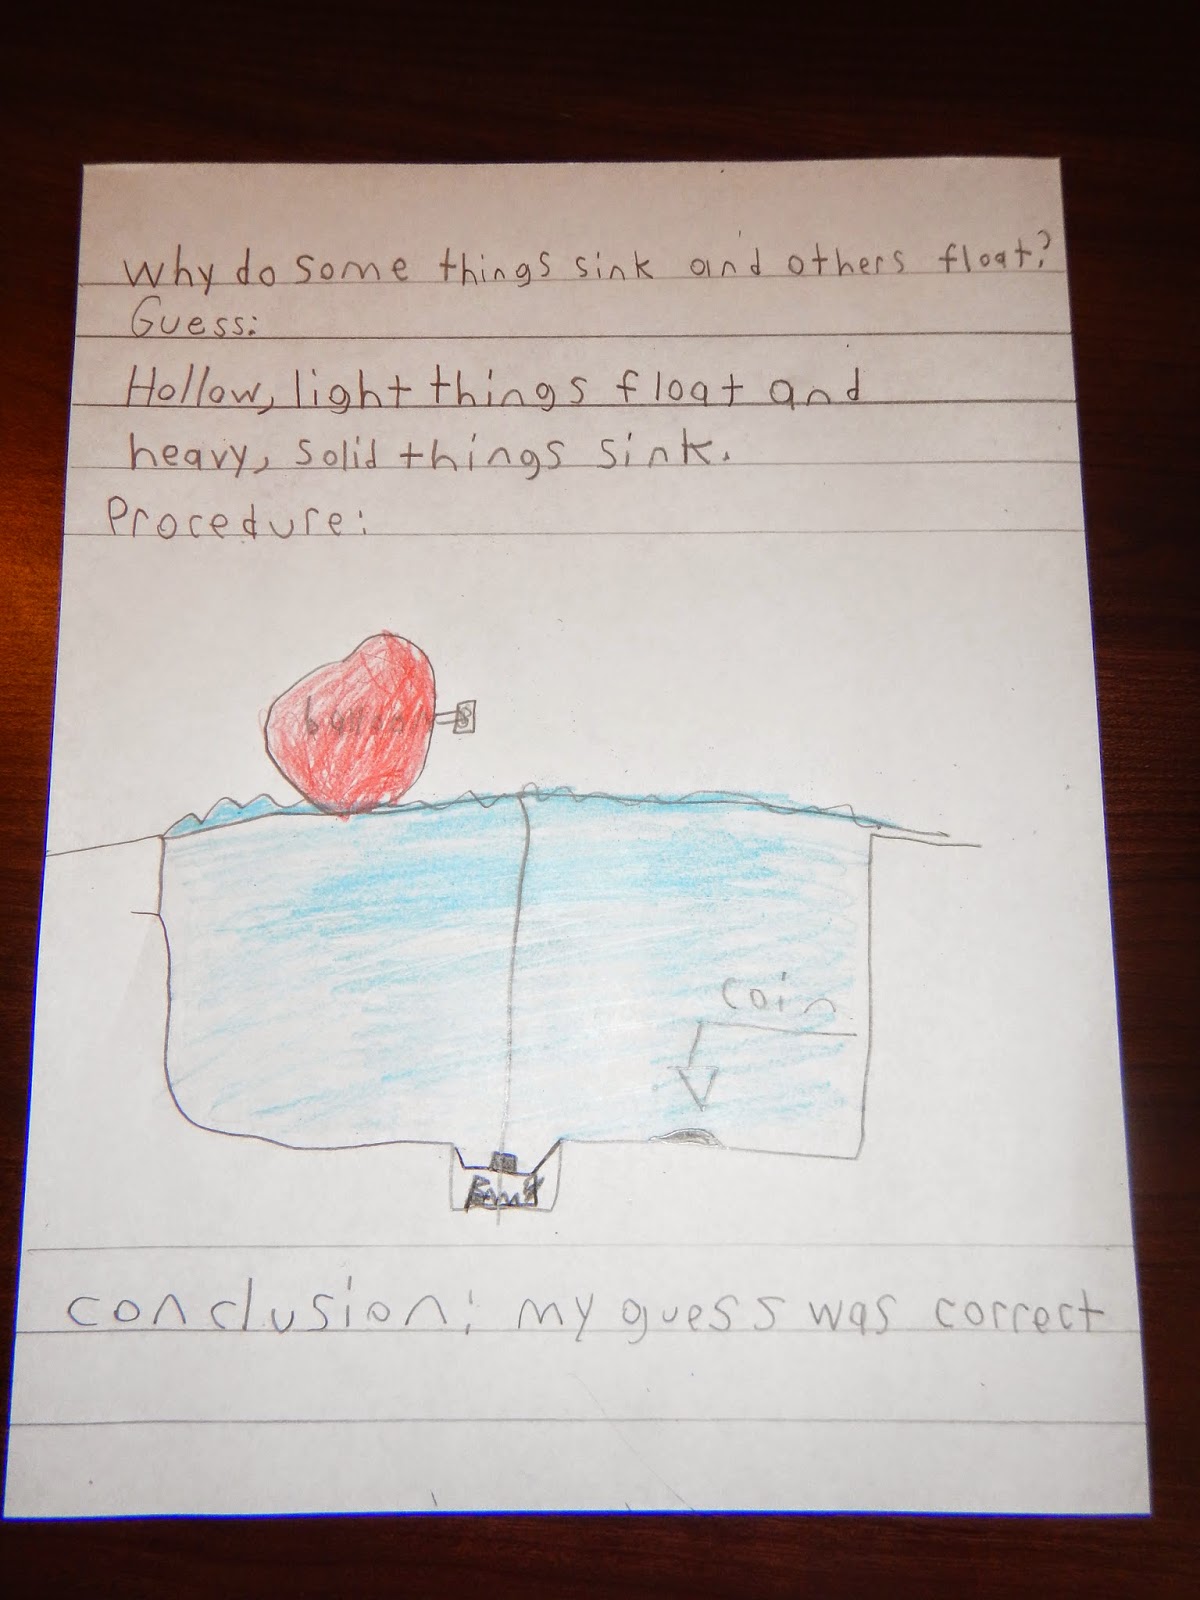 Why do some things sink and others float?
Guess:
Hollow, light things float and
heavy, solid things sink.
Procedure:
balloon
coin
conclusion: my guess was correct